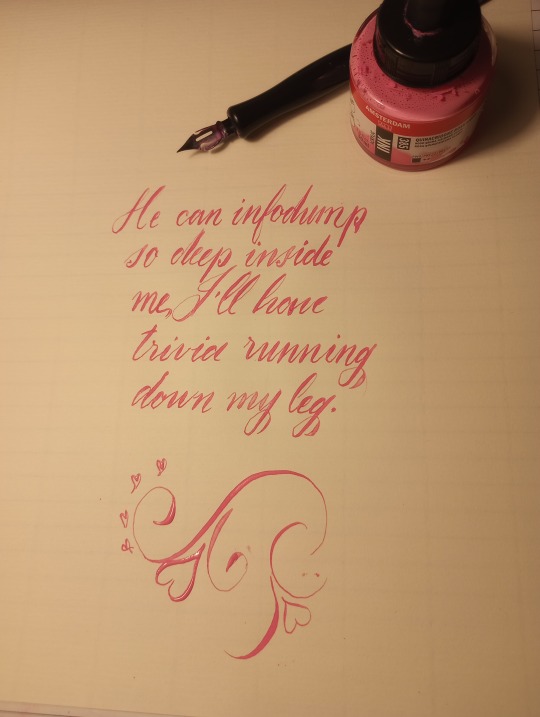 AMSTERDAM
INK
He can infodump
so deep inside
me, I'll have
trivia running
down my leg.